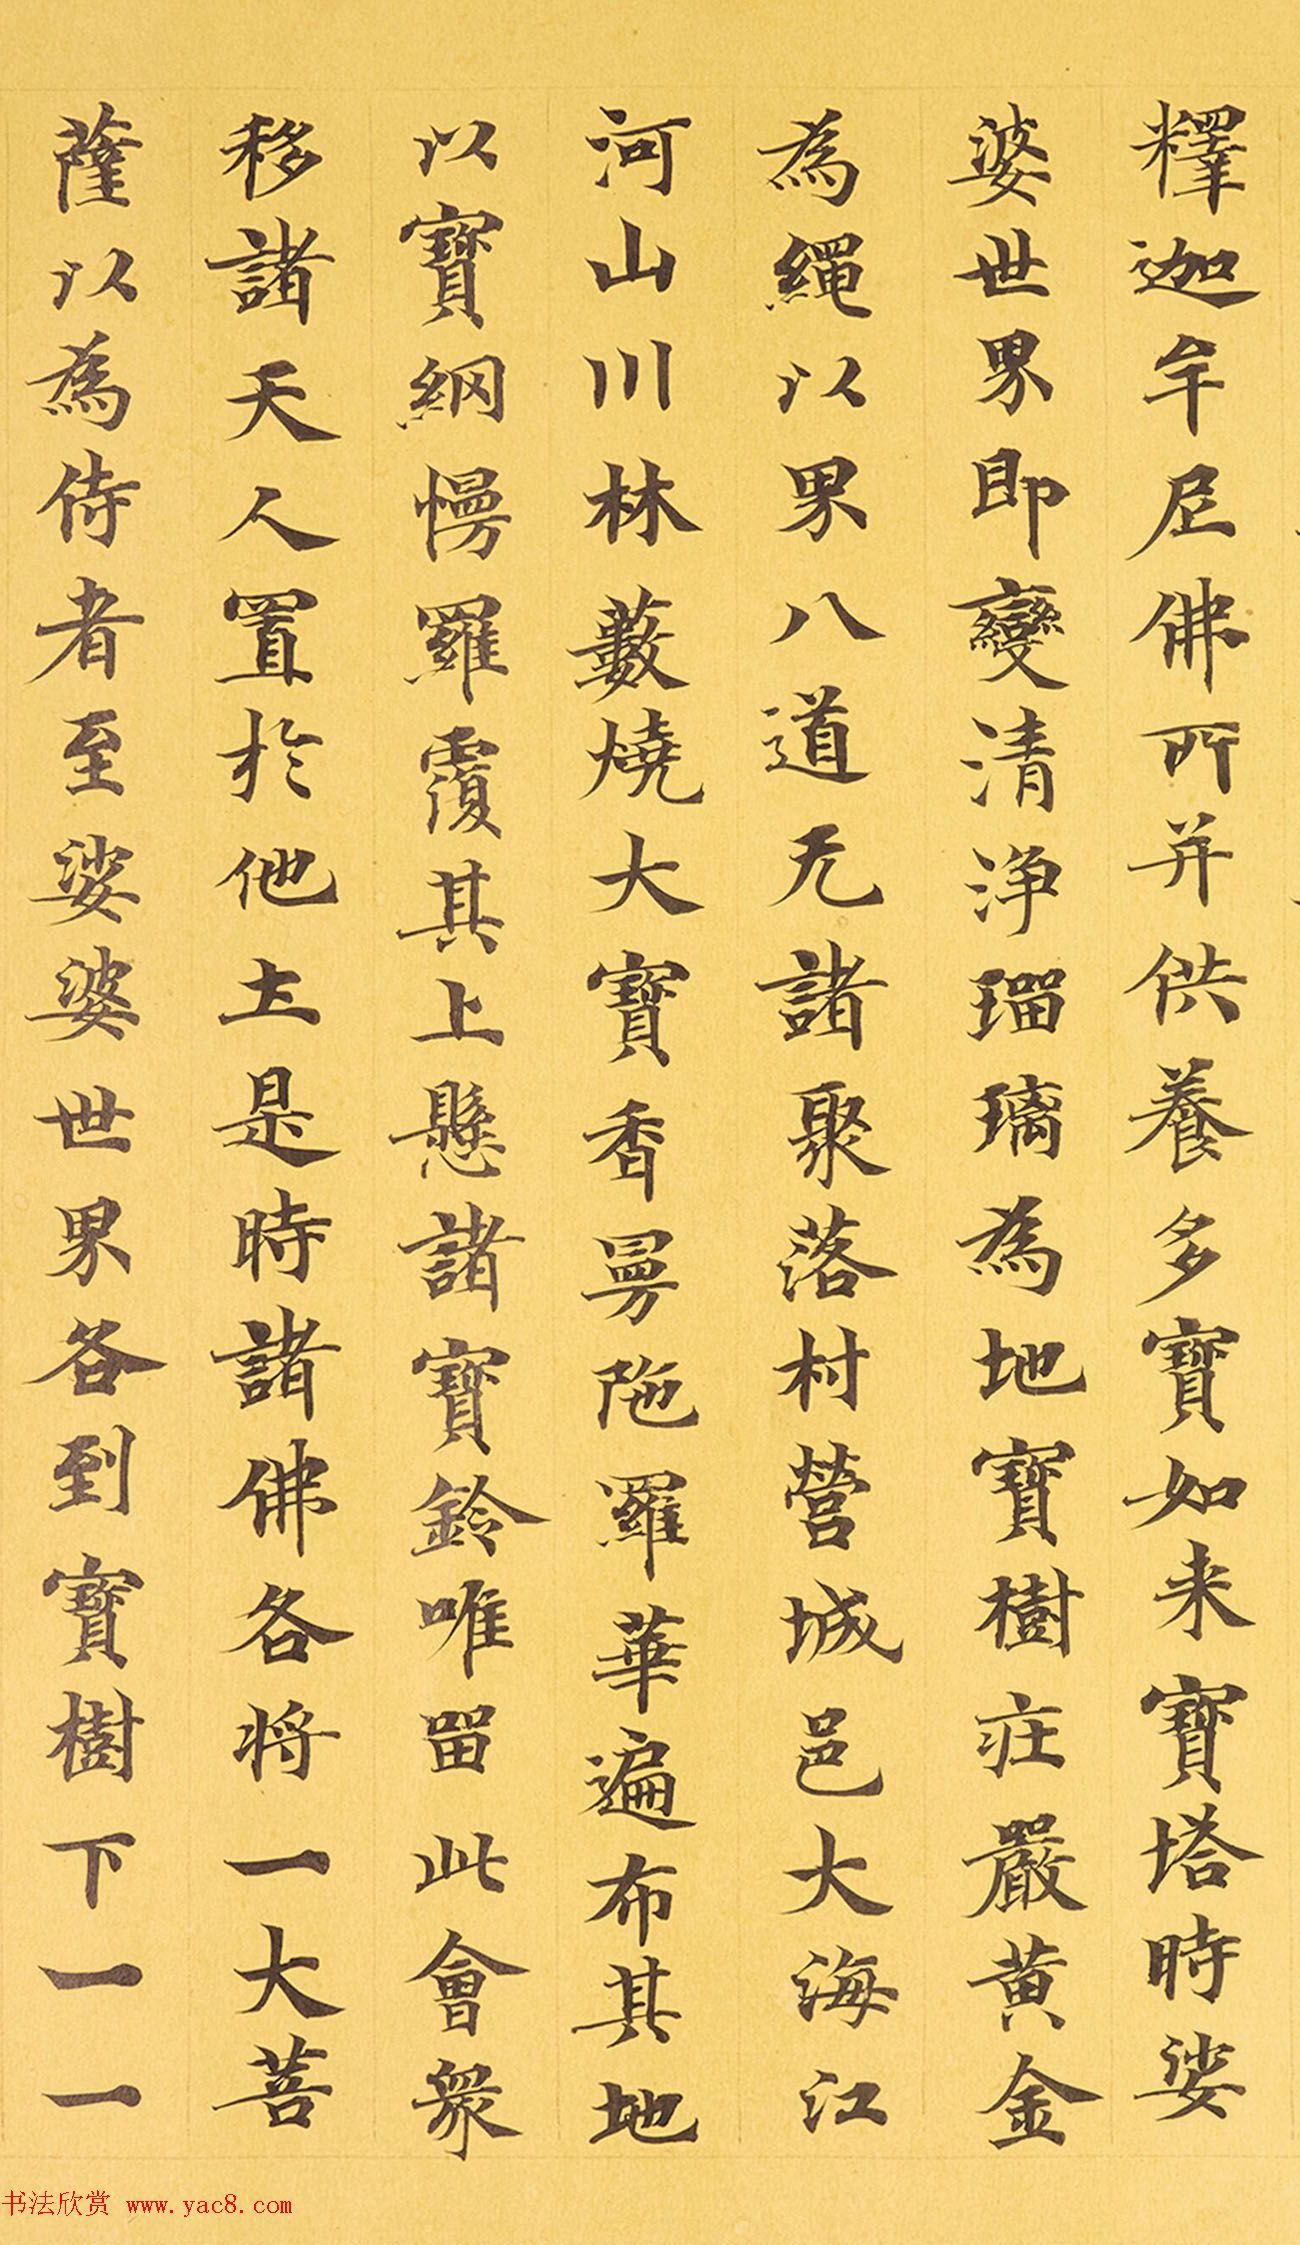 釋迦牟尼佛所并供養多寶如来寶塔時娑
婆世界即變清淨瑠璃為地寶樹庄嚴黄金
為繩以界八道无諸聚落村營城邑大海江
河山川林藪燒大寶香曼陁羅華遍布其地
以寶網幔羅覆其上懸諸寶鈴唯留此會衆
移諸天人置於他土是時諸佛各将一大菩
薩以為侍者至娑婆世界各到寶樹下一一
书法欣赏 www.yac8.com